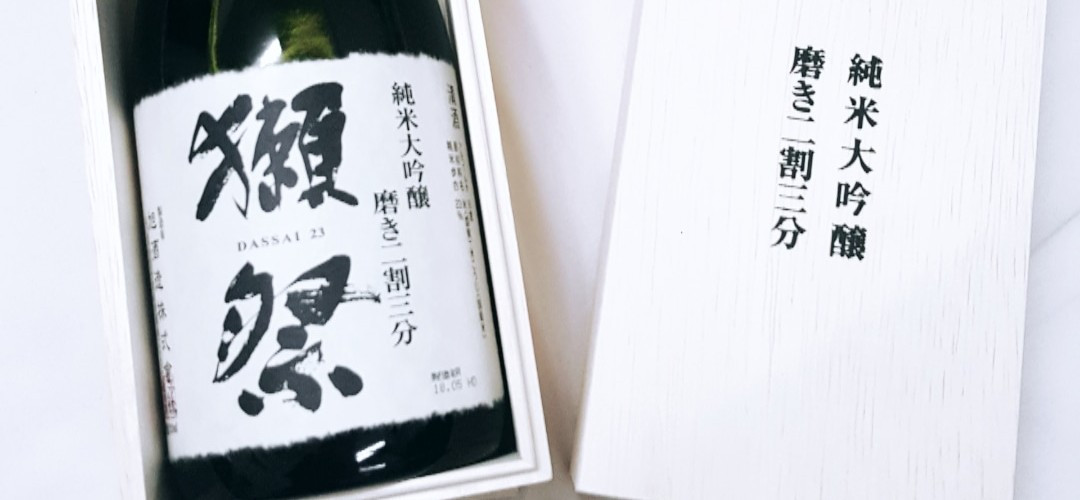 獺祭
DASSAI 23
純米大吟醸
磨き二割三分
清酒
旭酒造株式会社
18.05 HD
純米大吟醸
磨き二割三分